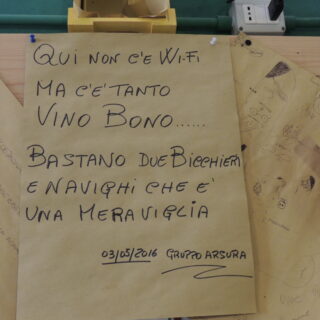 QUI NON C'È WI.FI
MA C'È TANTO
VINO BONO......
BASTANO DUE BICCHIERI
E NAVIGHI CHE E'
UNA MERAVIGLIA
03/05/2016 GRUPPO ARSURA